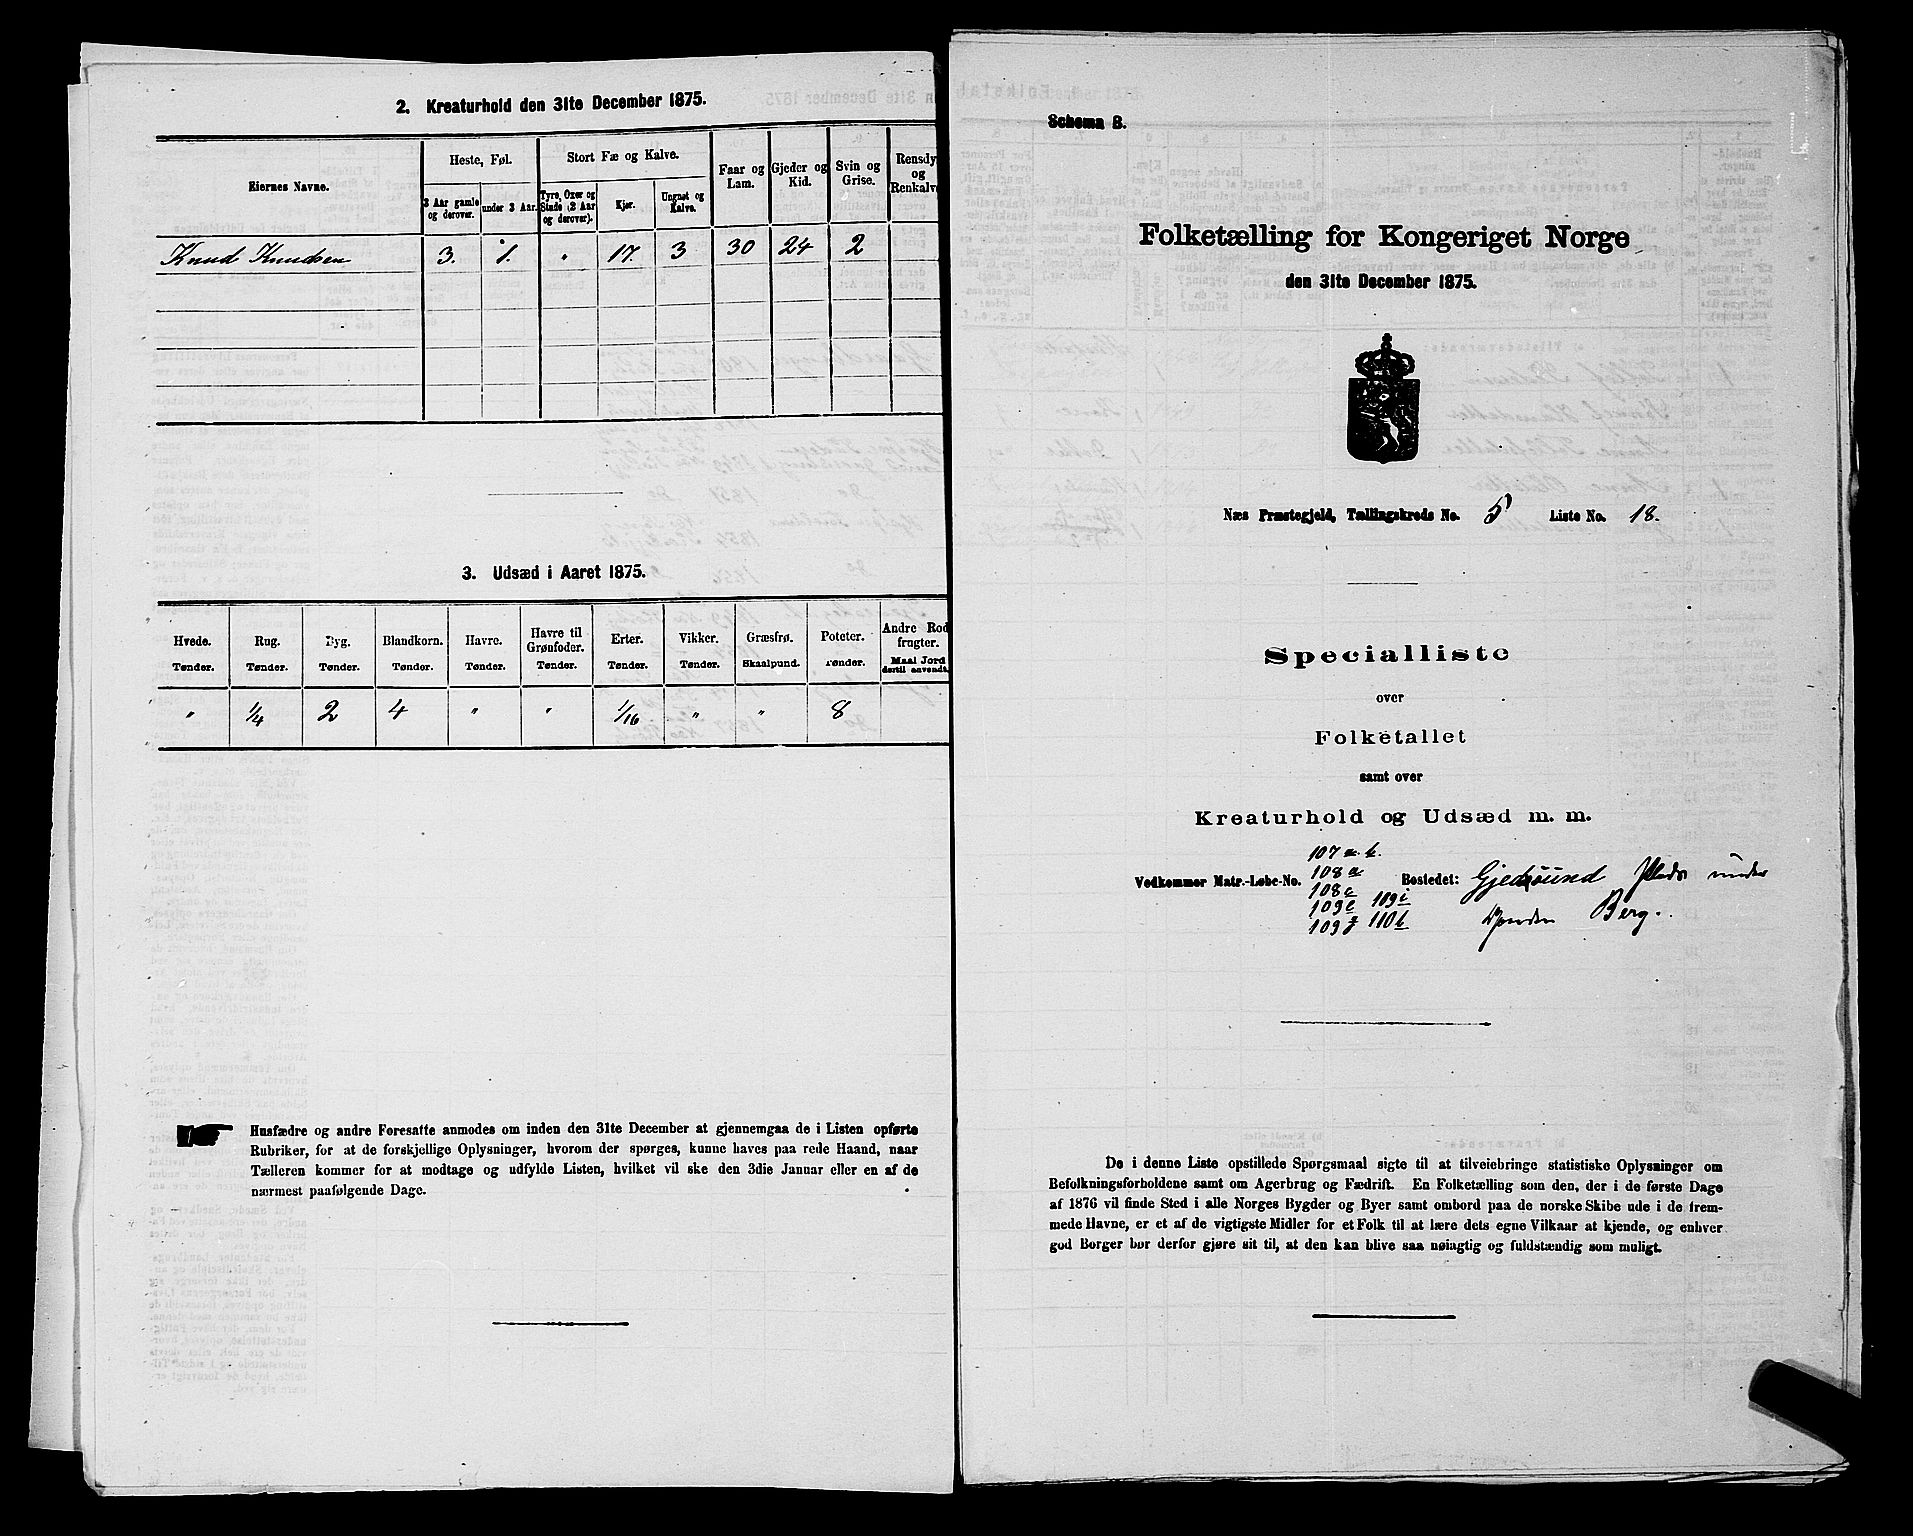 2. Kreaturhold den 31te December 1875.
Eiernes Navne.
Heste, Føl.
3 Aar gamle og derover.
under 3 Aar.
Stort Fæ og Kalve.
Tyre, Oxer og Stude (2 Aar og derover).
Kjør.
Ungnøt og Kalve.
Faar og Lam.
Gjeder og Kid.
Svin og Grise.
Rensdy og Renkalve
Knud Knudsen 3. 1. " 17. 3 30 24 2
3. Udsæd i Aaret 1875.
Hvede. Rug. Byg. Blandkorn. Havre. Havre til Grønfoder. Erter. Vikker. Græsfrø. Poteter. Andre Rodfrugter.
Tønder. Tønder. Tønder. Tønder. Tønder. Tønder. Tønder. Tønder. Skaalpund. Tønder. Maal Jord dertil anvendt.
" 1/4 2 4 " " 1/16 " " 8
Husfædre og andre Foresatte anmodes om inden den 31te December at gjennemgaa de i Listen opførte
Rubriker, for at de forskjellige Oplysninger, hvorom der spørges, kunne haves paa rede Haand, naar
Tælleren kommer for at modtage og udfylde Listen, hvilket vil ske den 3die Januar eller en af de
nærmest paafølgende Dage.
Schema B.
Folketælling for Kongeriget Norge
den 31te December 1875.
Næs Præstegjeld, Tællingskreds No. 5 Liste No. 18.
Specialliste
over
Folketallet
samt over
Kreaturhold og Udsæd m. m.
107 a. b.
Vedkommer Matr.-Løbe-No. 108 a Bostedet: Gjedsund Plads under
108 c
109 e 109 i Berg.
109 g 110 b
De i denne Liste opstillede Spørgsmaal sigte til at tilveiebringe statistiske Oplysninger om
Befolkningsforholdene samt om Agerbrug og Fædrift. En Folketælling som den, der i de første Dage
af 1876 vil finde Sted i alle Norges Bygder og Byer samt ombord paa de norske Skibe ude i de frem-
mede Havne, er et af de vigtigste Midler for et Folk til at lære dets egne Vilkaar at kjende, og enhver
god Borger bør derfor gjøre sit til, at den kan blive saa nøiagtig og fuldstændig som muligt.